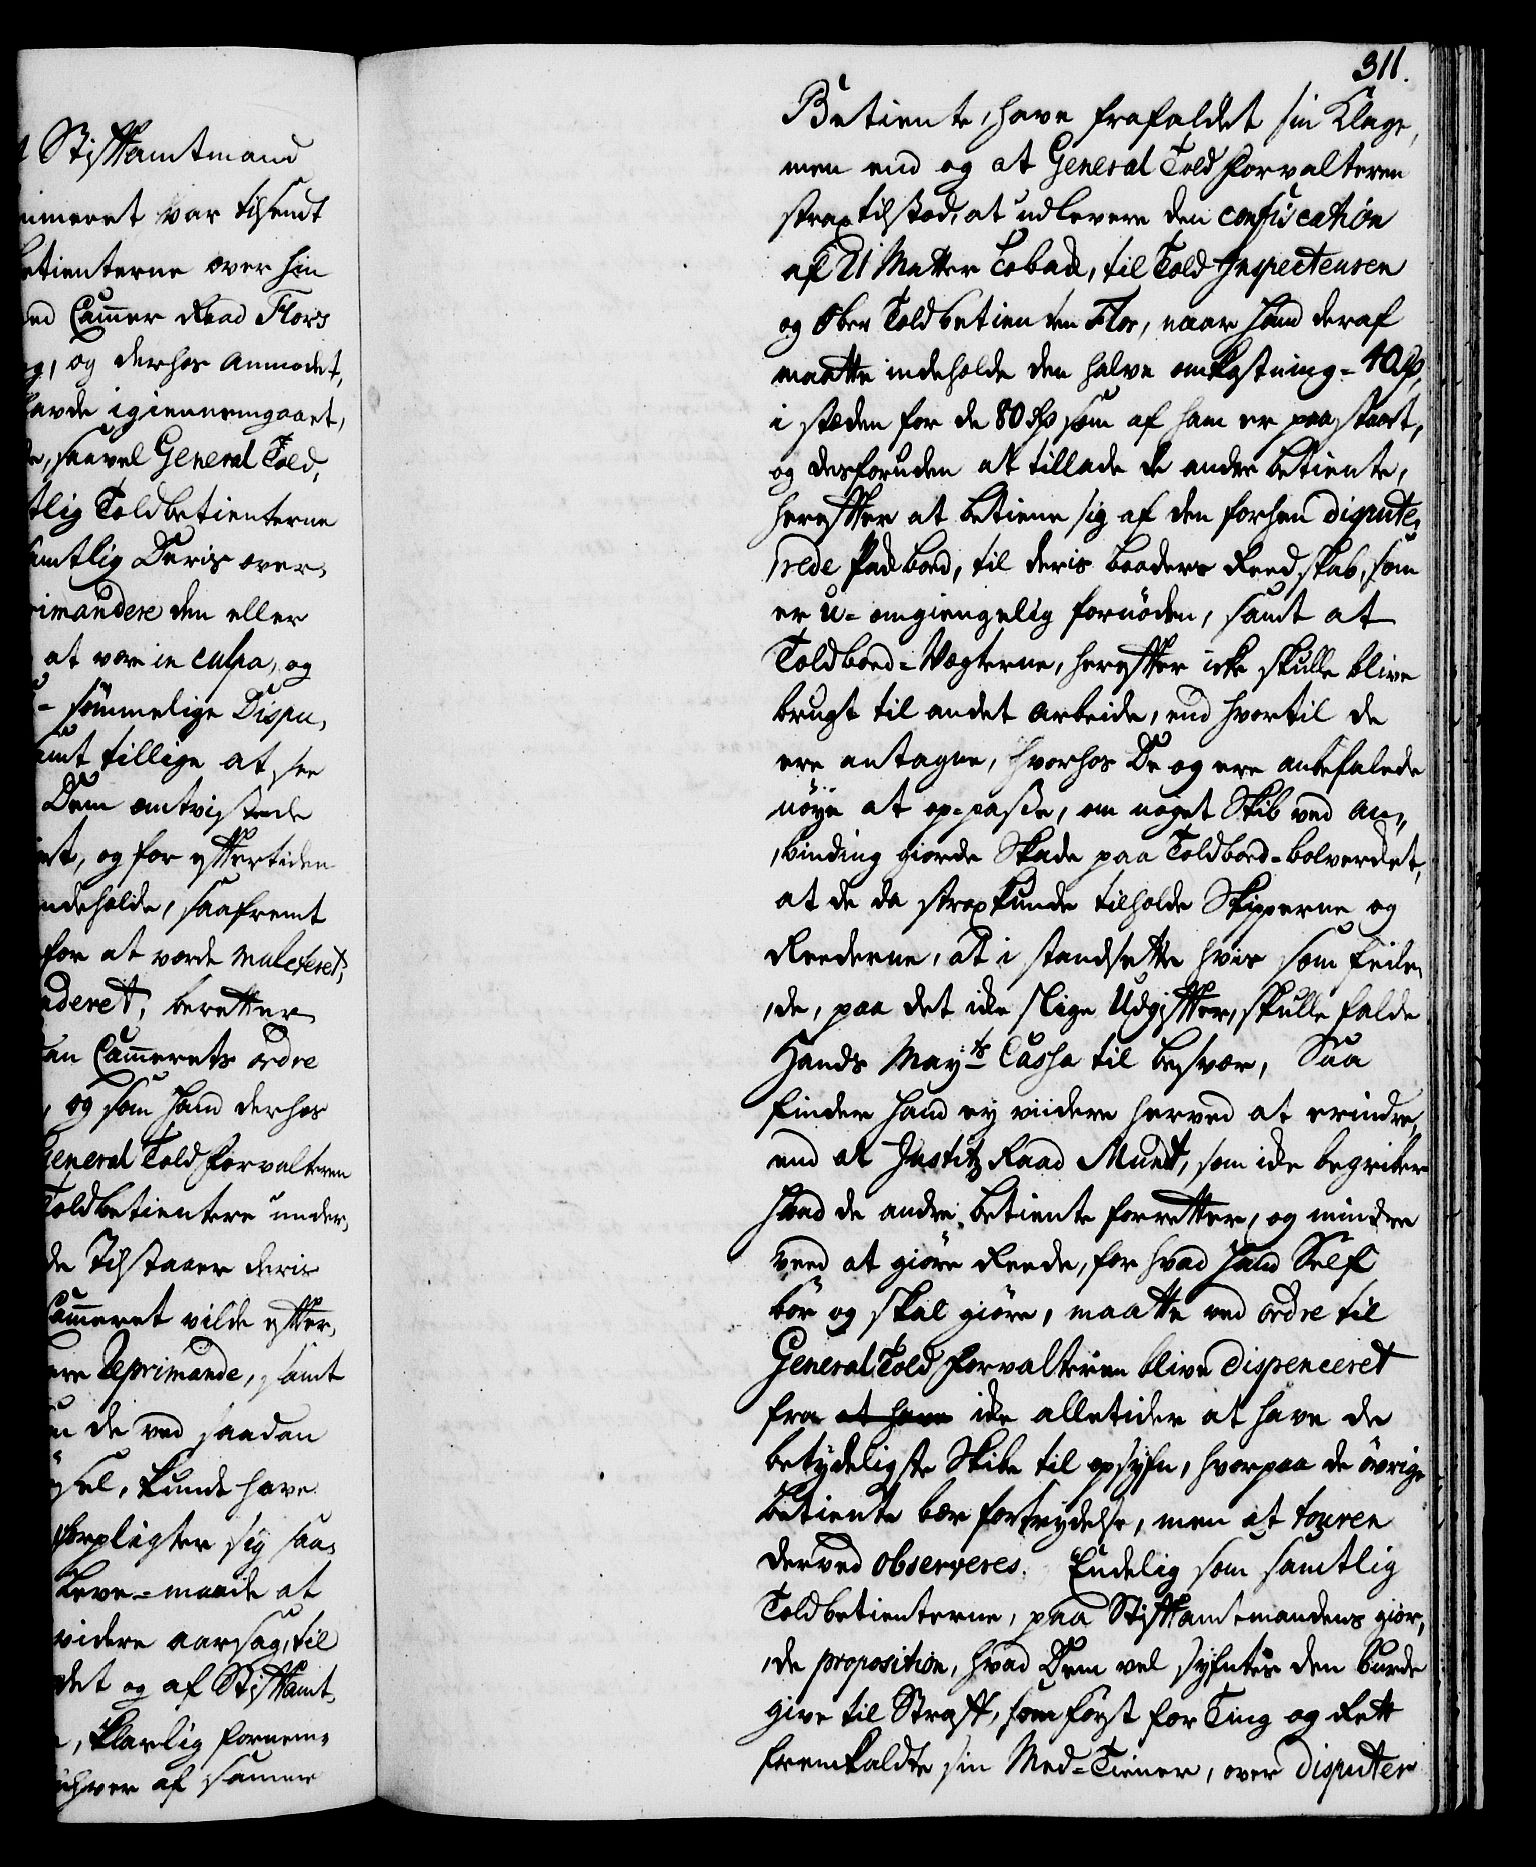 Stifftamtmand
var tilsendt
betienterne over hin
Cammer Raad Flors
og derhos anmodet,
havde igiennemgaaet,
saavel General Told,
Toldbetienterne
samtlig Deris over,
den eller
at være in culpa, og
sömmelige Dispu,
samt tillige at see
Dem omtvistede
og for efftertiden
indeholde, saafremt
for at vorde mulcteret,
beretter
Cammerets ordre
og som hand derhos
General Toldforvalteren
Toldbetientere under,
de tilstaaer deris
Cammeret vilde effter,
Reprimande, samt
de ved saadan
kunde have
forpligter sig saa,
Leve-maade at
videre aarsag, til
og af Stifftamt,
klarlig fornem,
af samme
311.
Betiente, have frafaldet sin Klage,
men end og at General Told forvalteren
strax tilstod, at udlevere den confiscation
af 21 Matter Toback, til Told Inspecteuren
og Ober Toldbetienten Flor, naar hand deraf
maatte indeholde den halve omkostning - 40 rd,
i stæden for de 80 rd som af ham er paastaaet,
og desforuden at tillade de andre betiente,
hereffter at betiene sig af den forhen dispute,
,rede Packboed, til deris baaders Reedskab, som
er u-omgiengelig fornöden, samt at
Toldboed-Vægterne, hereffter icke skulle blive
brugt til andet arbeide, end hvortil de
ere antagne, hvorhos De og ere anbefalede
nöye at op-passe, om noget Skib ved an,,
,binding giorde Skade paa Toldboed-bolverket,
at de da strax kunde tilholde Skipperne og
Reederne, at i standsette hvis som feile,
,de, paa det icke slige Udgiffter, skulle falde
Hands May:ts Cassa til besvær, Saa
finder hand ey viidere herved at erindre,
end at Justitz Raad Mundt, som icke begriber
hvad de andre betiente forretter, og mindre
veed at giöre Reede, for hvad hand Self
bör og skal giöre, maatte ved ordre til
General Told forvalteren blive dispenceret
fra at have icke alletider at have de
betydeligste Skibe til opsyn, hvorpaa de övrige
betiente bær fortrydelse, men at touren
derved observeres. Endelig som samtlig
Toldbetienterne, paa Stifftamtmandens gior,
,de proposition, hvad Dem vel syntes den burde
give til Straff, som först for Ting og Rett
fremkaldte sin Med-Tiener, over disputer